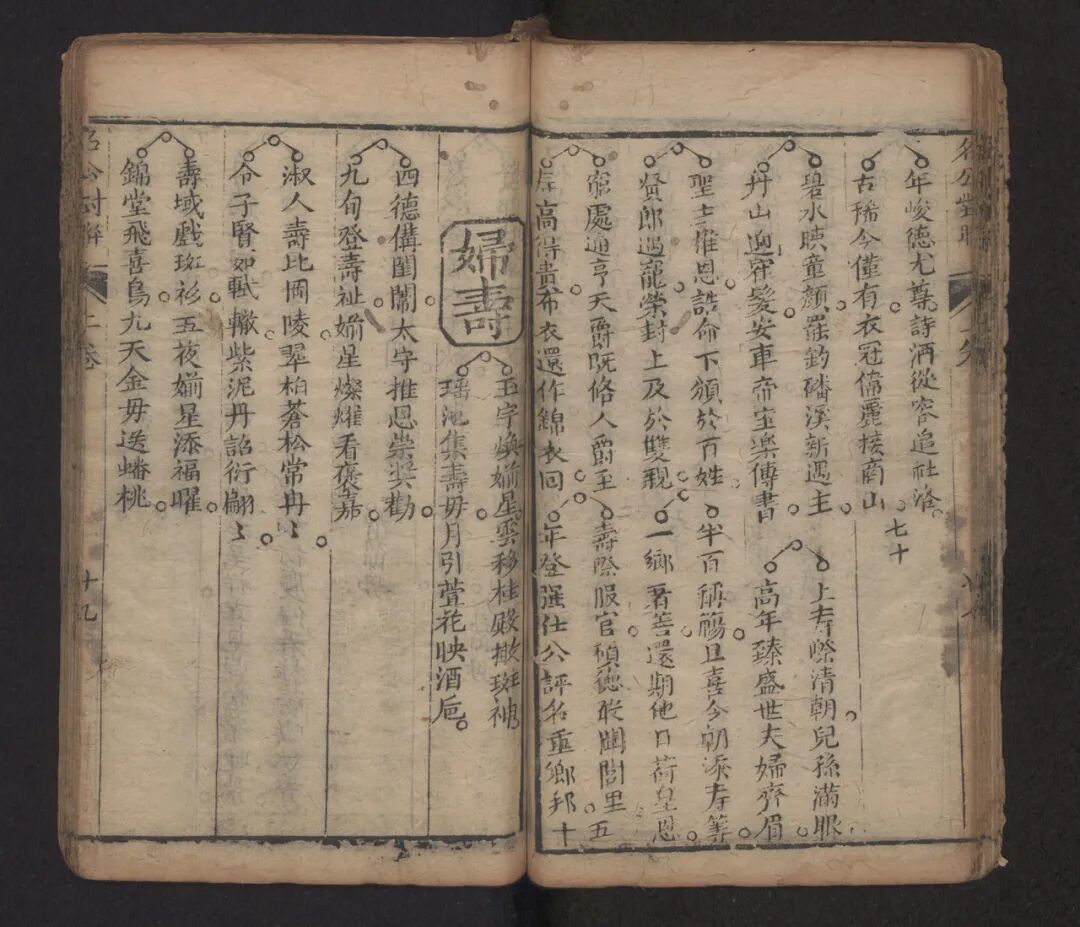 名公對聯
年峻德尤尊詩酒從容追社洛
古稀今僅有衣冠偉麗接商山 七十
碧水映童顏羅釣磻溪新遇主
上寿際清朝兒孫滿眼
丹山迎窄髮安車帝室樂傳書
高年臻盛世夫婦齊眉
聖主推恩誥命下頒於百姓
半百稱觴且喜今朝添寿筭
賢郎遇寵榮封上及於雙親
一鄉著善還期他日荷皇恩
窮處通亨天爵既脩人爵至
壽際服官碩德敢闢閭里五
居高得貴布衣還作錦衣回
年登强仕公評名重鄉邦十
婦壽
玉字煥婺星雲移桂殿撒斑袖
瑶池集壽毋月引萱花映酒巵
四德備閨閫太守推恩崇奖勸
九旬登壽祉婺星燦耀看褒嘉
淑人壽比岡陵翠柏蒼松常冉冫
令子賢如軾轍紫泥丹詔衍翩冫
壽域戲斑衫五夜婺星添福曜
錦堂飛喜鳥九天金毋送蟠桃
名公對聯
上卷
十九